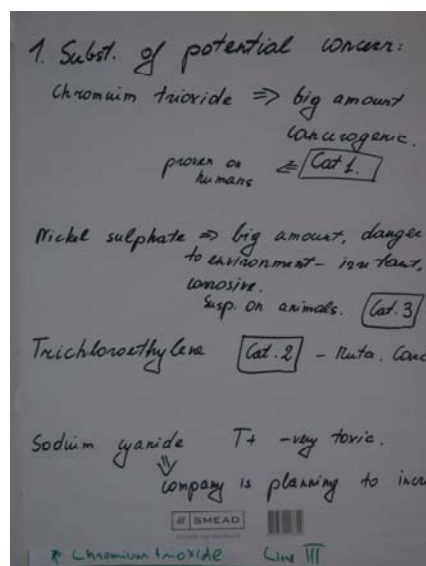 1. Subst. of potential concern:
Chromuim trioxide ⇒ big amount
cancerogenic.
proven on ⇐ Cat 1.
humans
Nickel sulphate ⇒ big amount, danger
to environment - irritant,
corrosive.
Susp. on animals. Cat. 3
Trichloroethylene Cat. 2 - Muta. Canc
Sodium cyanide T+ - very toxic.
⇓
company is planning to incr
SMEAD
* Chromium trioxide Line III